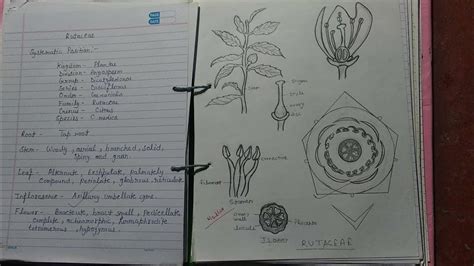 Rutaceae
Systematic Position:-
Kingdom - Plantae
Division - Angiosperm
Group - Dicotyledonae
Series - Disciflorae
Order - Geraniales
Family - Rutaceae
Genus - Citrus
Species - C. medica
Root - Tap root
Stem - Woody, aerial, branched, solid,
Spiny and green.
Leaf - Alternate, Exstipulate, Palmately
Compound, Petiolate, glabrous reticulate.
Inflorescence - Axillary umbellate cyme.
Flower - Bracteate, bract small, Pedicellate,
Complete, actinomorphic, hermaphrodite
tetramerous, hypogynous.
Stigma
Style
Ovary
Connective
Filament
Stamen
Ovary
wall
locule
Placenta
RUTACEAE